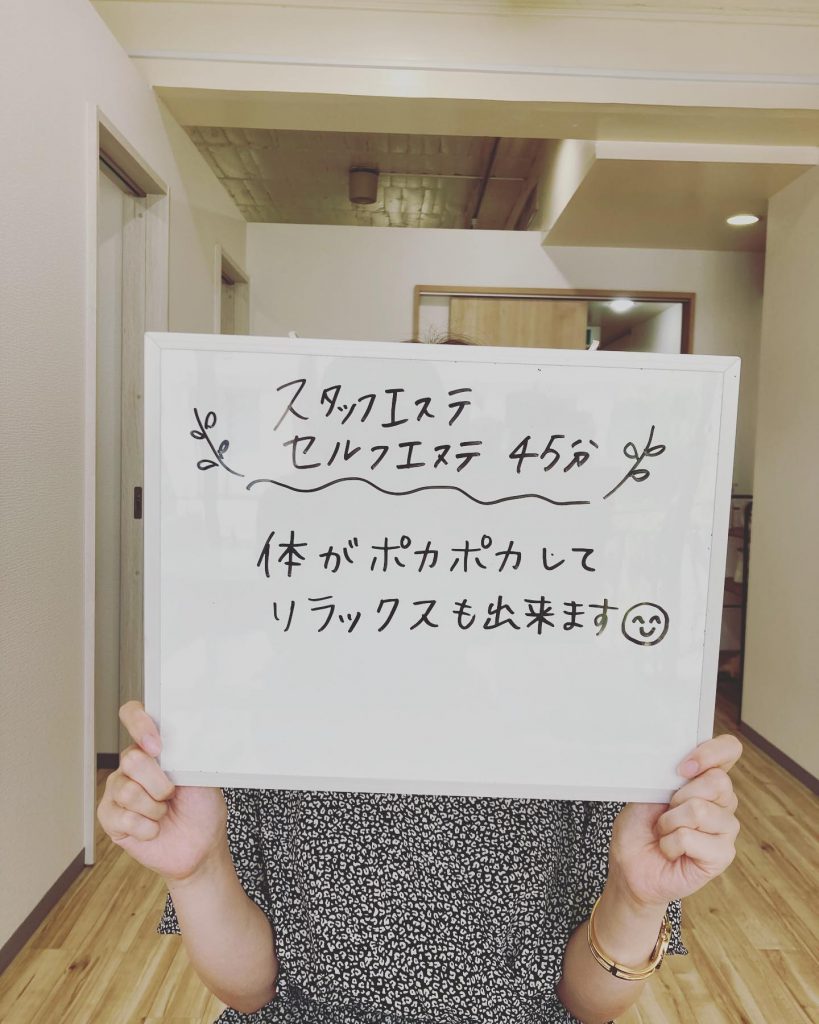 スタッフエステ
セルフエステ 45分
体がポカポカして
リラックスも出来ます